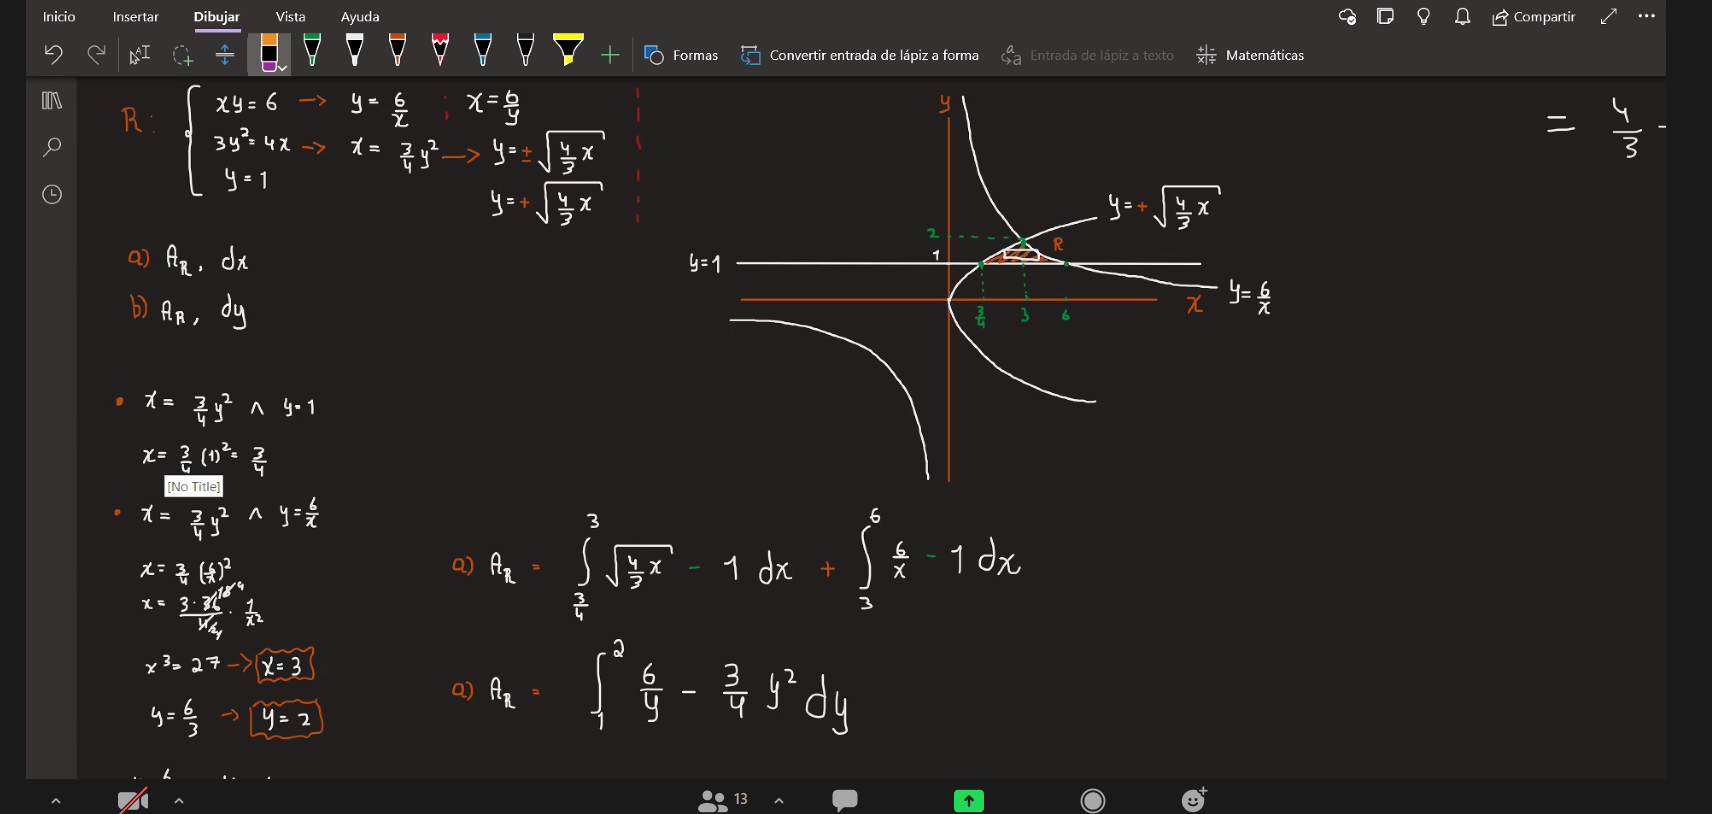 Inicio Insertar Dibujar Vista Ayuda Compartir
Formas Convertir entrada de lápiz a forma Entrada de lápiz a texto Matemáticas
R: { xy = 6 → y = 6/x ; x = 6/y
3y² = 4x → x = 3/4 y² → y = ± √(4/3 x)
y = 1
y = + √(4/3 x)
a) A_R, dx
b) A_R, dy
• x = 3/4 y² ∧ y = 1
x = 3/4 (1)² = 3/4
[No Title]
• x = 3/4 y² ∧ y = 6/x
x = 3/4 (6/x)²
x = 3 · 36/4 · 1/x²
x³ = 27 → x = 3
y = 6/3 → y = 2
y
y = + √(4/3 x)
2
R
1
y = 1
y = 6/x
x
3/4 3 6
= 4/3 -
a) A_R = ∫_{3/4}^{3} √(4/3 x) - 1 dx + ∫_{3}^{6} 6/x - 1 dx
a) A_R = ∫_{1}^{2} 6/y - 3/4 y² dy
13